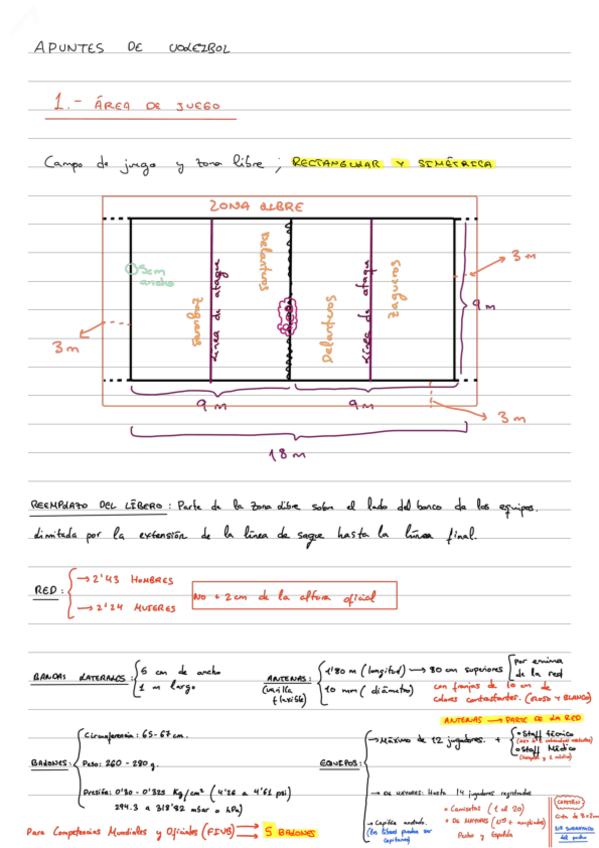 APUNTES DE VOLEIBOL
1.- ÁREA DE JUEGO
Campo de juego y zona libre ; RECTANGULAR Y SIMÉTRICA
ZONA LIBRE
5cm ancho
Zagueros
Línea de ataque
Delanteros
Delanteros
Línea de ataque
Zagueros
3 m
9 m
3 m
9 m
9 m
3 m
18 m
REEMPLAZO DEL LÍBERO : Parte de la zona libre sobre el lado del banco de los equipos.
limitada por la extensión de la línea de saque hasta la línea final.
RED :
→ 2'43 HOMBRES
→ 2'24 MUJERES
No + 2cm de la altura oficial
BANDAS LATERALES :
5 cm de ancho
1 m largo
ANTENAS :
(varilla flexible)
1'80 m (longitud) → 80 cm superiores
por encima de la red
10 mm (diámetro)
con franjas de 10 cm de
colores contrastantes. (ROJO Y BLANCO)
ANTENAS → PARTE DE LA RED
BALONES :
Circunferencia : 65-67 cm.
Peso : 260 - 280 g.
Presión : 0'30 - 0'325 Kg/cm² (4'26 a 4'61 psi)
294.3 a 318'82 mbar o hPa)
Para Competencias Mundiales y Oficiales (FIVB) → 5 BALONES
EQUIPOS :
→ Máximo de 12 jugadores. +
• Staff técnico
• Staff Médico
→ DE MAYORES: Hasta 14 jugadores registrados
• Camisetas (1 al 20)
+ DE MAYORES (
Pecho y Espalda
→ Capitán
CAPITÁN
Cinta de 8x2cm